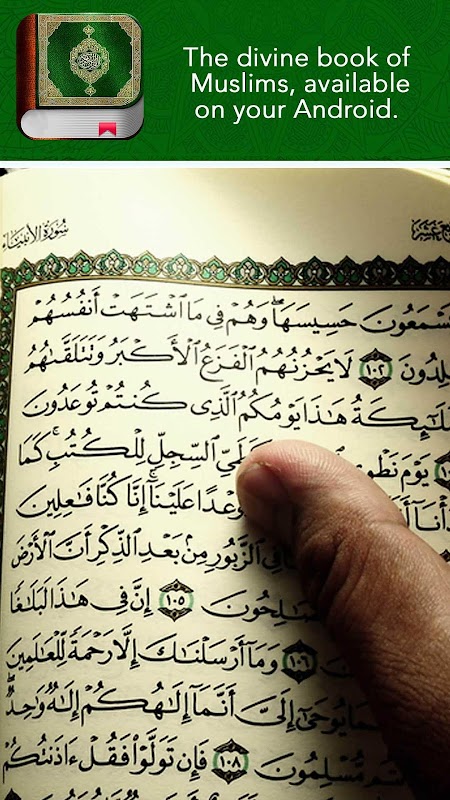 The divine book of
Muslims, available
on your Android.
عَشَرَ سُورَةُ الأَنبِيَاءِ
سْمَعُونَ حَسِيسَهَا ۖ وَهُمْ فِي مَا ٱشْتَهَتْ أَنفُسُهُمْ
لِدُونَ ١٠٢ لَا يَحْزُنُهُمُ ٱلْفَزَعُ ٱلْأَكْبَرُ وَتَتَلَقَّىٰهُمُ
لَٰٓئِكَةُ هَٰذَا يَوْمُكُمُ ٱلَّذِي كُنتُمْ تُوعَدُونَ
يَوْمَ نَطْوِي ٱلسِّجِلِّ لِلْكُتُبِ ۚ كَمَا
دَأْنَآ وَعْدًا عَلَيْنَآ ۚ إِنَّا كُنَّا فَٰعِلِينَ
فِي ٱلزَّبُورِ مِنۢ بَعْدِ ٱلذِّكْرِ أَنَّ ٱلْأَرْضَ
صَّٰلِحُونَ ١٠٥ إِنَّ فِي هَٰذَا لَبَلَٰغًا
١٠٦ وَمَآ أَرْسَلْنَٰكَ إِلَّا رَحْمَةً لِّلْعَٰلَمِينَ
مَا يُوحَىٰٓ إِلَيَّ أَنَّمَآ إِلَٰهُكُمْ إِلَٰهٌ وَٰحِدٌ ۖ
تُم مُّسْلِمُونَ ١٠٨ فَإِن تَوَلَّوْا۟ فَقُلْ ءَاذَنتُكُمْ